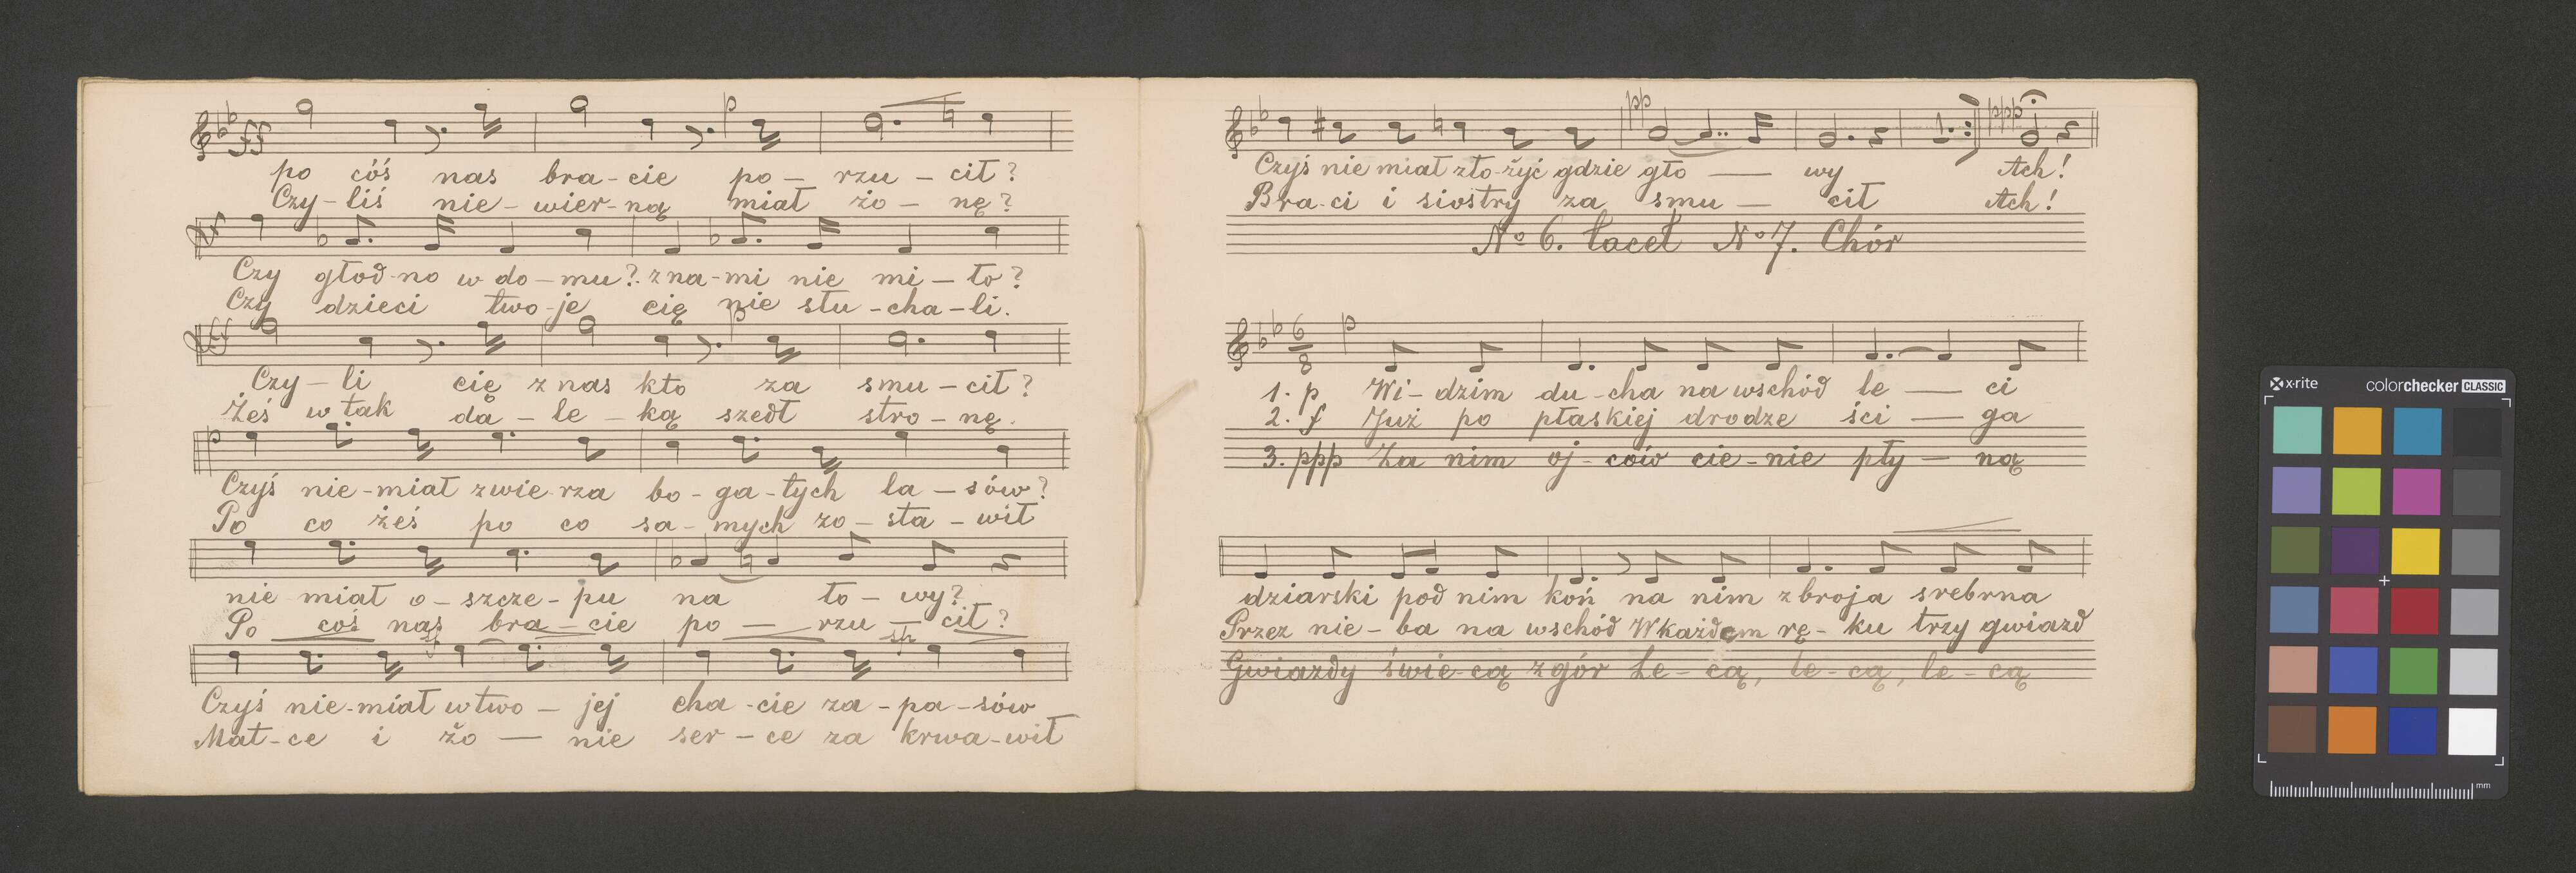 ff p
po cóś nas bra-cie po - rzu - cił?
Czy-liś nie-wier-ną miał żo - nę?
Czy głod-no w do-mu? z na-mi nie mi-ło?
Czy dzieci two-je cię nie słu-cha-li.
p
Czy-li cię z nas kto za smu-cił?
Żeś w tak da-le-ką szedł stro-nę.
p
Czyś nie-miał zwie-rza bo-ga-tych la-sów?
Po co żeś po co sa-mych zo-sta-wił
nie miał o-szcze-pu na ło-wy?
Po coś nas bra-cie po - rzu - cił?
Czyś nie-miał w two - jej cha-cie za-pa-sów
Mat-ce i żo - nie ser-ce za krwa-wił
pp ppp
Czyś nie miał zło-żyć gdzie gło - wy Ach!
Bra-ci i siostry za smu - cił Ach!
No 6. tacet No 7. Chór
6/8 p
1. p Wi-dzim du-cha na wschód le - ci
2. f Już po płaskiej drodze ści - ga
3. ppp Za nim oj-ców cie-nie pły - ną
dziarski pod nim koń na nim zbroja srebrna
Przez nie-ba na wschód W każdem rę-ku trzy gwiazd
Gwiazdy świe-cą z gór Le-cą, le-cą, le-cą
x-rite colorchecker CLASSIC
mm